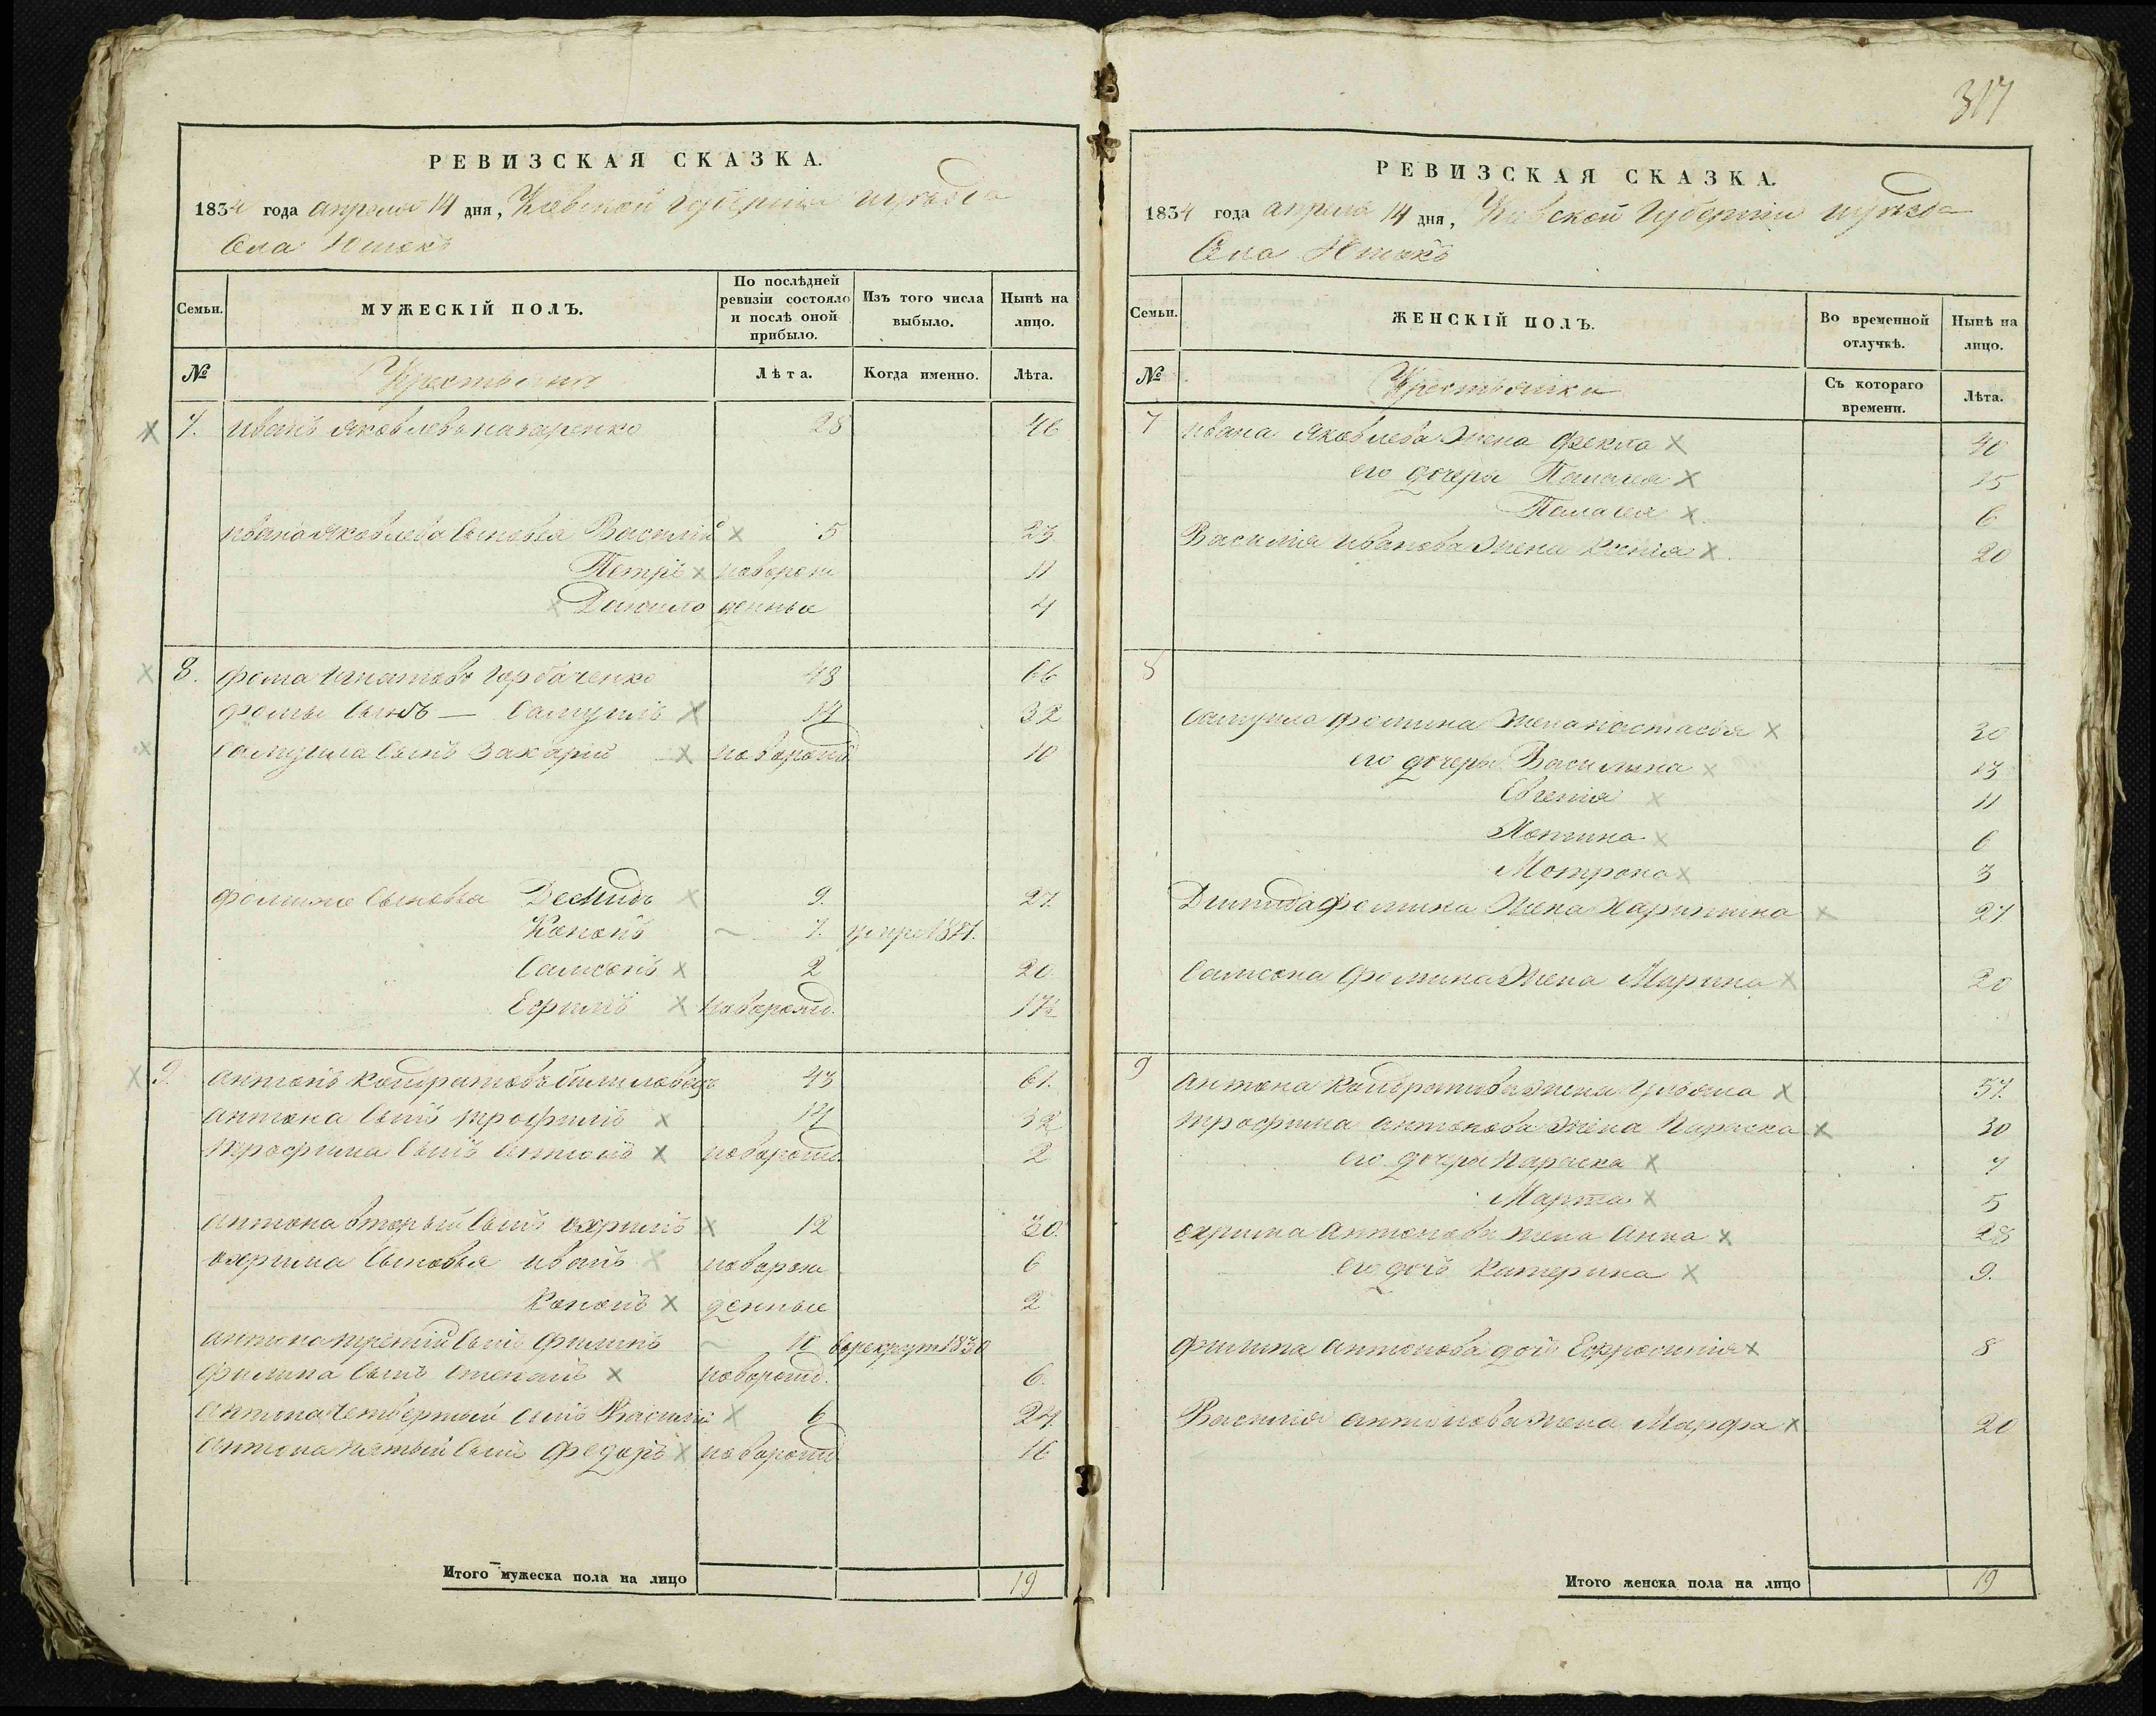 РЕВИЗСКАЯ СКАЗКА.
1834 года апреля 14 дня, Киевской губернии и уезда
Села Юшокъ
Семьи.
МУЖЕСКІЙ ПОЛЪ.
По послѣдней ревизіи состояло и послѣ оной прибыло.
Изъ того числа выбыло.
Нынѣ на лицо.
№
Крестьяне
Лѣта.
Когда именно.
Лѣта.
7. иванъ яковлевъ назаренко 28 46
ивана яковлева сыновья Василій 5 23
Петръ новорож 11
Данило денные 4
8. фома игнатовъ горбаченко 48 66
фомы сынъ — самуилъ 14 32
самуила сынъ захарій новорожд 10
фомины сыновья Демидъ 9. 27
Кононъ 7. умре 1821.
самсонъ 2 20
Ефимъ новорожд. 17½
9. антонъ кондратовъ 43 61.
антона сынъ трофимъ 14 32
трофима сынъ антонъ новорожд. 2
антона вторый сынъ охримъ 12 30.
охрима сыновья иванъ новорож 6
кононъ денные 2
антона третій сынъ филипъ 11 въ рекрут 1830
филипа сынъ степанъ новорожд. 6.
антона четвертый сынъ Василій 6 24
антона пятый сынъ федоръ новорожд 16
Итого мужеска пола на лицо 19
317
РЕВИЗСКАЯ СКАЗКА.
1834 года апреля 14 дня, Киевской губернии и уезда
Села Юшокъ
Семьи.
ЖЕНСКІЙ ПОЛЪ.
Во временной отлучкѣ.
Нынѣ на лицо.
№
Крестьянки
Съ котораго времени.
Лѣта.
7 ивана яковлева жена фекла 40
его дочери Палагея 15
Палагея 6
Василия иванова жена ксенія 20
8
самуила фомина жена настасья 30
его дочери Василина 13
Евгенія 11
6
Мотрона 3
Демида фомина жена Харитина 27
самсона фомина жена Марина 20
9 антона кондратова жена ульяна 57.
трофима антонова жена параска 30
его дочери параска 7
Марта 5
охрима антонова жена анна 28
его дочъ катерина 9.
филипа антонова дочъ Ефросинія 8
Василія антонова жена Марфа 20
Итого женска пола на лицо 19